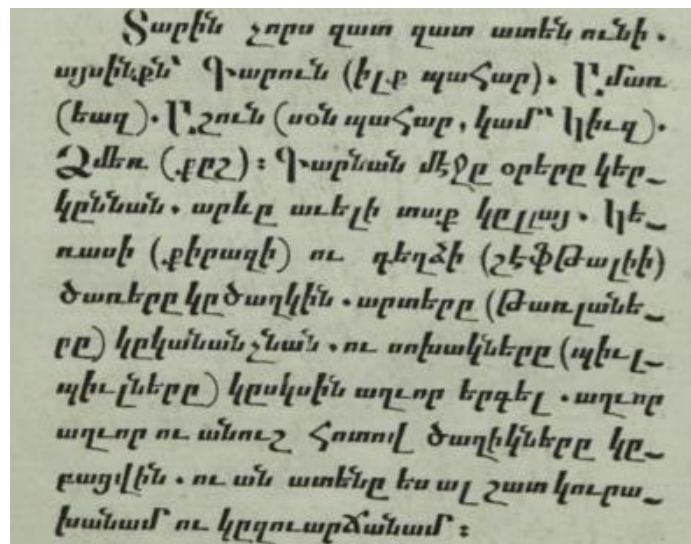 Տարին չորս զատ զատ ատեն ունի.
այսինքն՝ Գարուն (իլք պահար). Ամառ
(եազ). Աշուն (սօն պահար, կամ՝ կիւզ).
Ձմեռ (քըշ)։ Գարնան մէջը օրերը կեր_
կըննան. արևը աւելի տաք կըլլայ. կե_
ռասի (քիրազի) ու դեղձի (շէֆթալիի)
ծառերը կըծաղկին. արտերը (թառլանե_
րը) կըկանանչնան. ու սոխակները (պիւլ_
պիւլները) կըսկսին աղւոր երգել. աղւոր
աղւոր ու անուշ հոտով ծաղիկները կը_
բացվին. ու ան ատենը ես ալ շատ կուրա_
խանամ ու կըզուարճանամ։